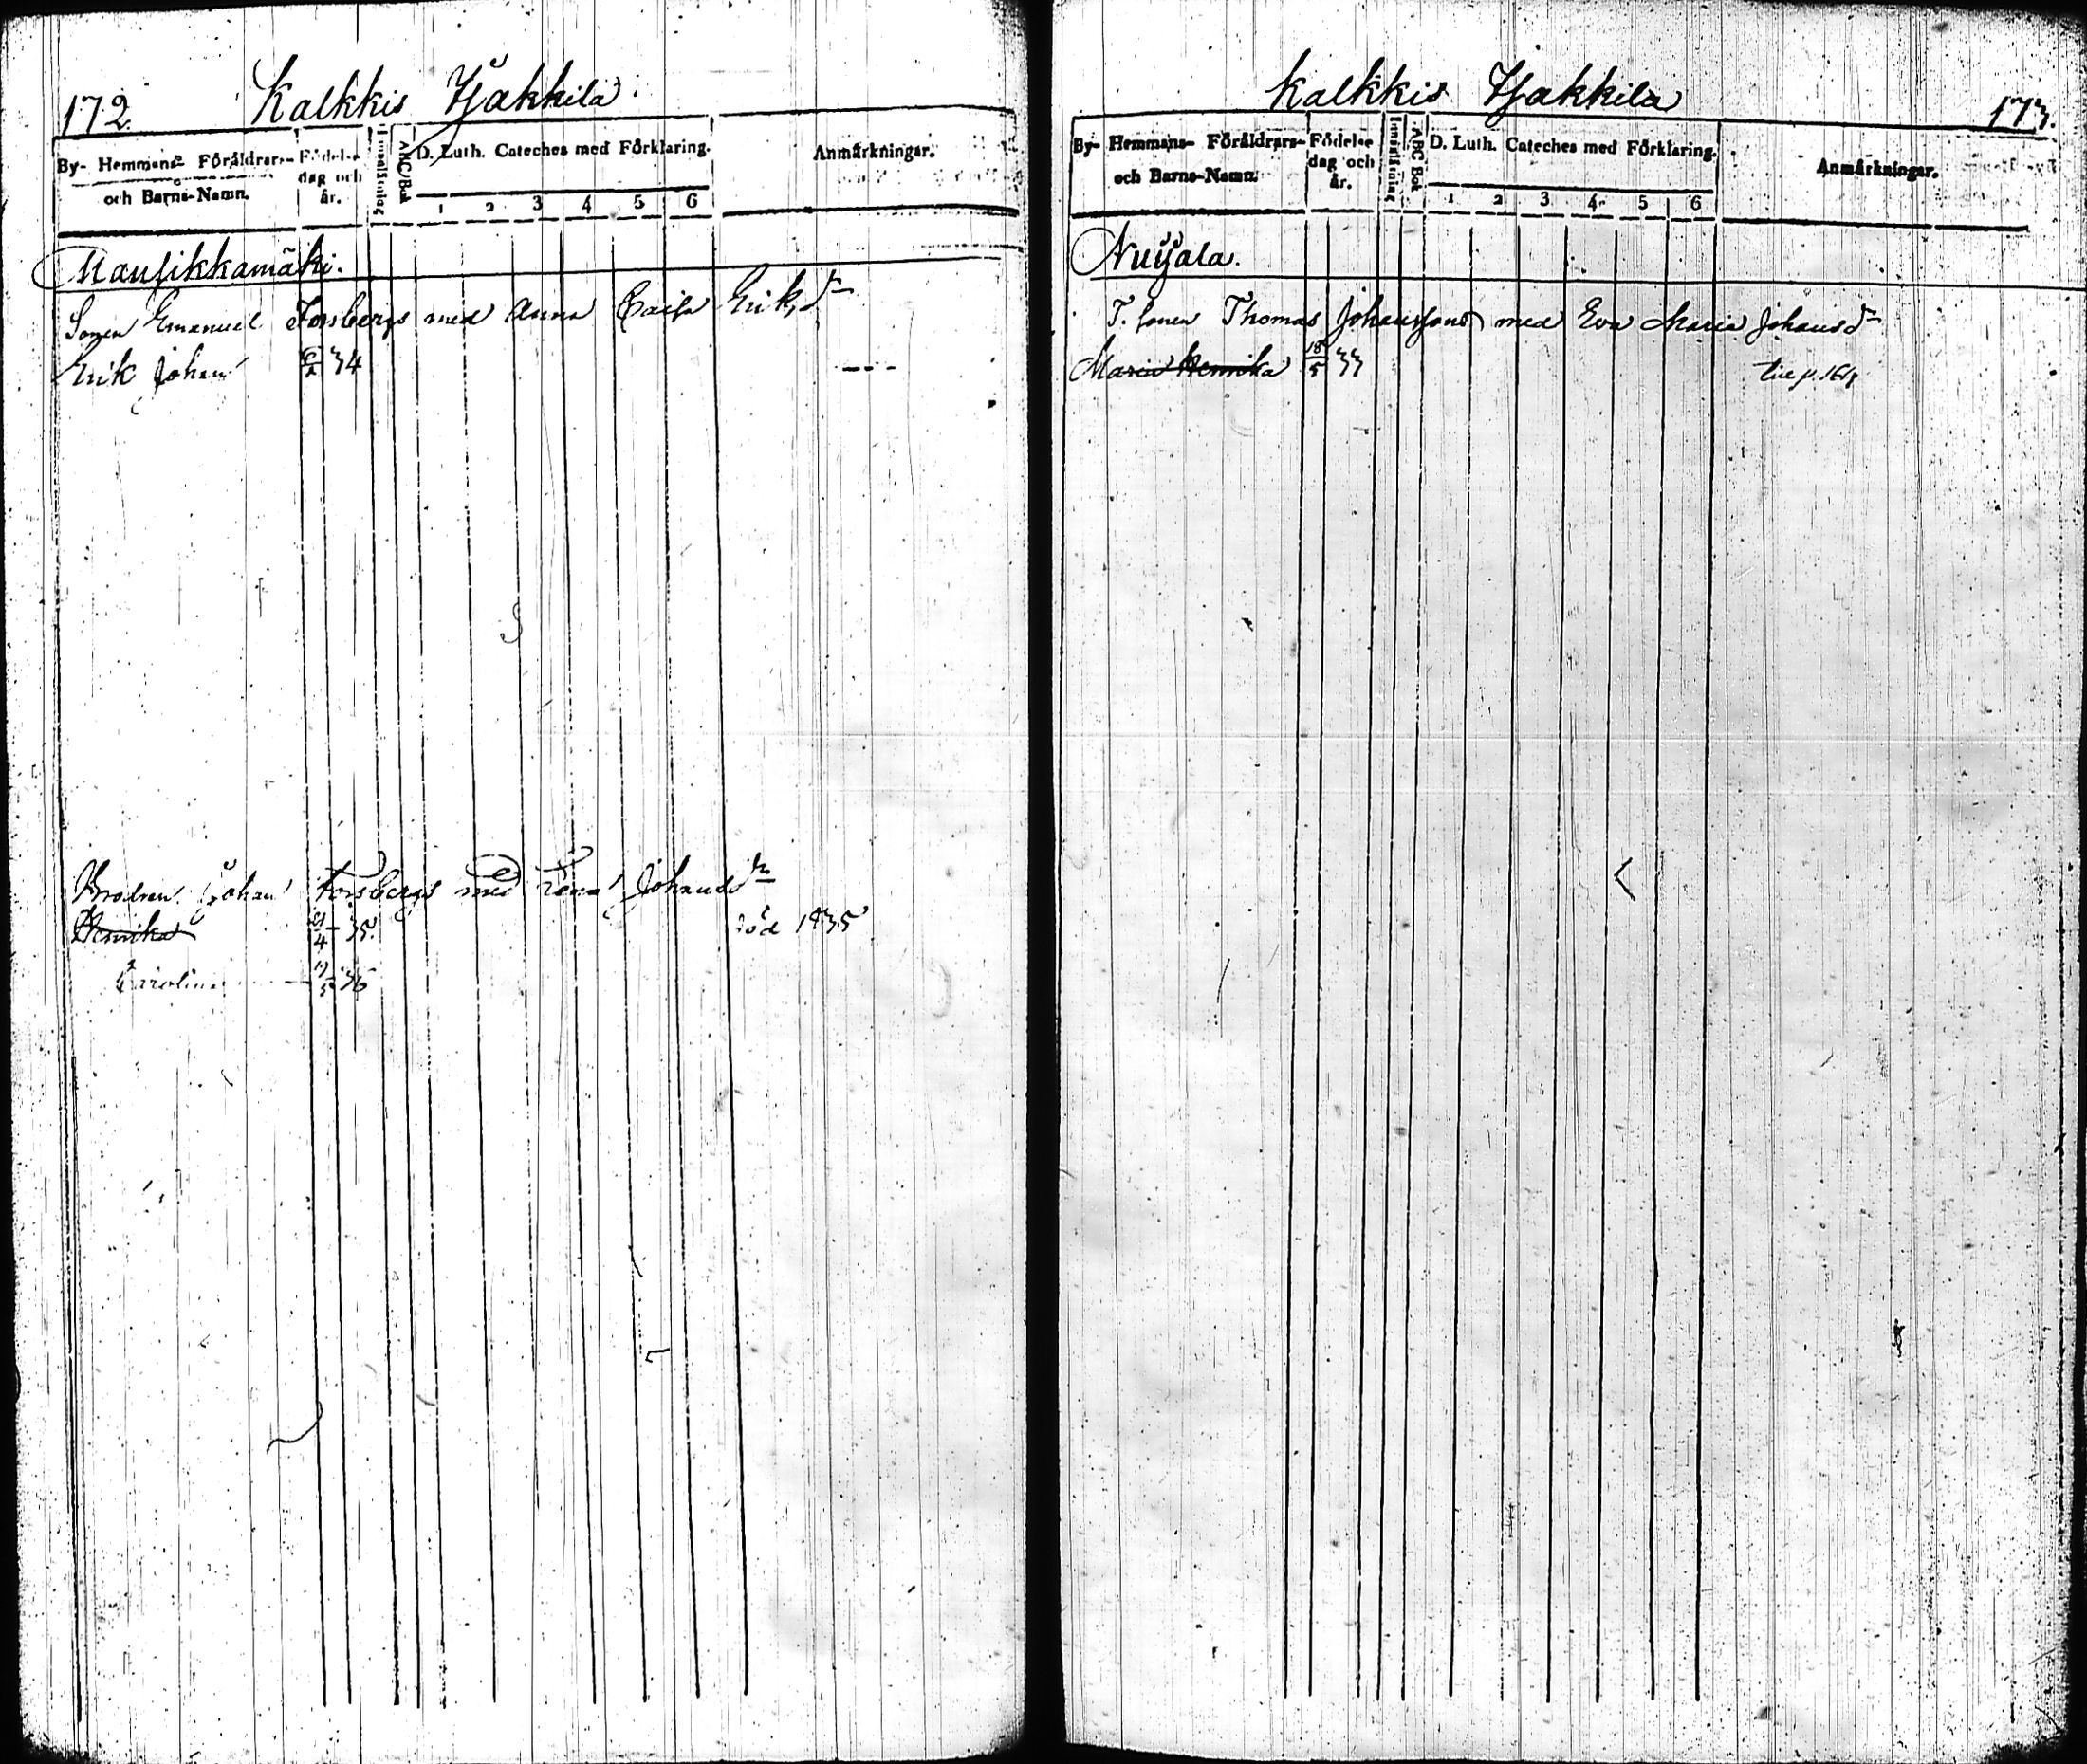 172. Kalkkis Hjakkila.
By- Hemmans- Föräldrars- och Barns-Namn.
Födelse dag och år.
Innanläsning
ABC/Bok
D. Luth. Cateches med Förklaring.
1 2 3 4 5 6
Anmärkningar.
Mansikkamäki.
Sonen Emanuel Forsbergs med Anna Caisa Eriksdr
Erik Johan 34
Brodren Johan Forsbergs med Lena Johansdr
Henrika 21/4 35. död 1835
Carolina 17/5 36
Kalkkis Hjakkila 173.
By- Hemmans- Föräldrars- och Barns-Namn.
Födelse dag och år.
Innanläsning
ABC Bok
D. Luth. Cateches med Förklaring.
1 2 3 4 5 6
Anmärkningar.
Nuijala.
T. sonen Thomas Johanssons med Eva Maria Johansdr
Maria Henrika 18/5 33